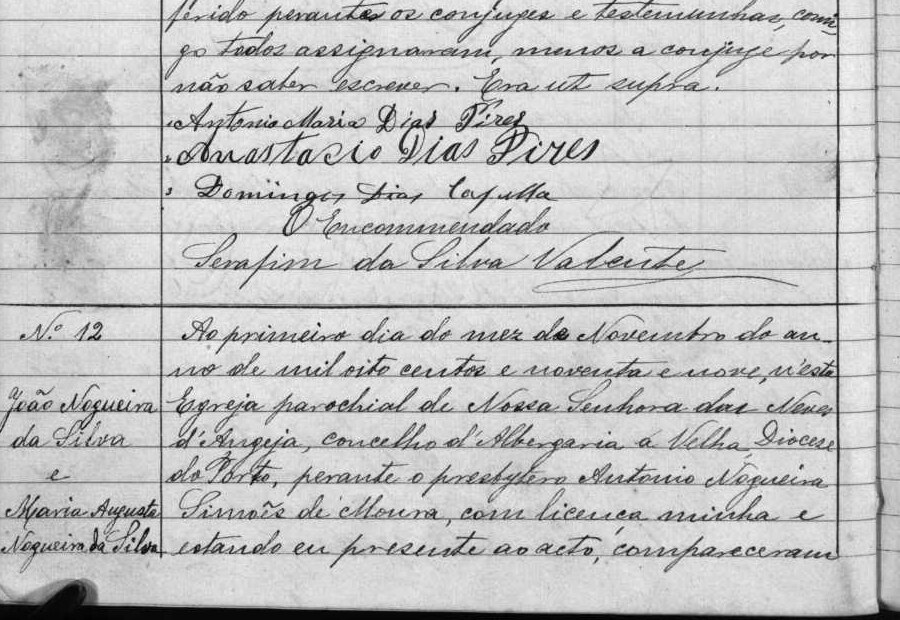 ferido perante os conjuges e testemunhas, comi-
go todos assignaram, menos a conjuge por
não saber escrever. Era ut supra.
Antonio Maria Dias Pires
Anastacio Dias Pires
Domingos Dias Capella
O Encommendado
Serafim da Silva Valente
N.º 12
João Nogueira
da Silva
e
Maria Augusta
Nogueira da Silva
Ao primeiro dia do mez de Novembro do an-
no de mil oito centos e noventa e nove, n'esta
Egreja parochial de Nossa Senhora das Neves
d'Angeja, concelho d'Albergaria a Velha, Diocese
do Porto, perante o presbytero Antonio Nogueira
Simoẽs de Moura, com licença minha e
estando eu presente ao acto, compareceram